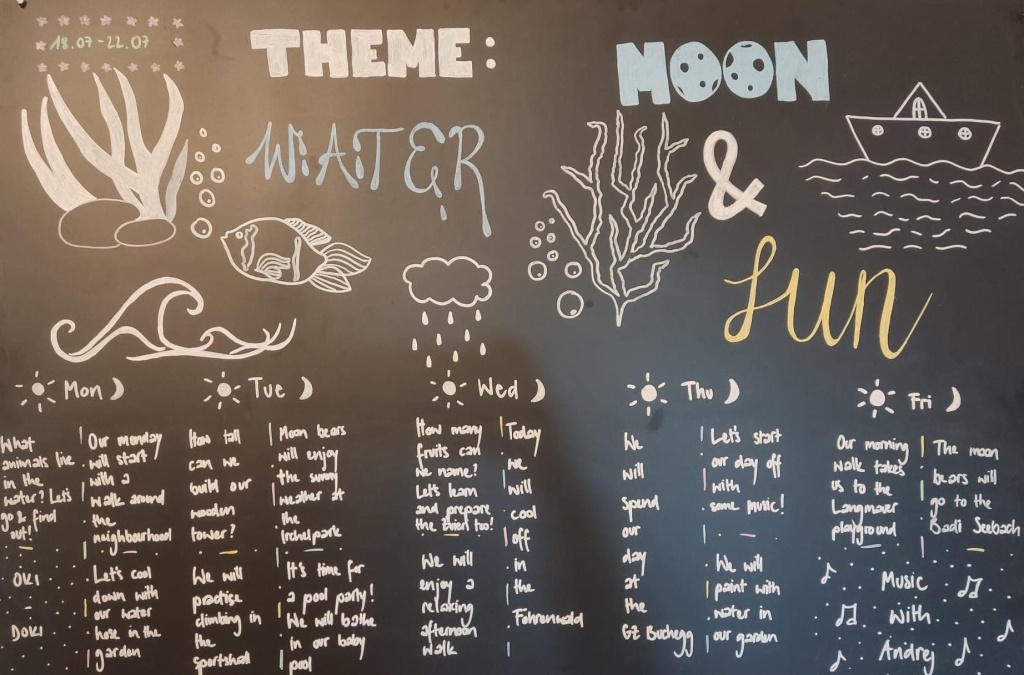 18.07 - 22.07
THEME:
MOON
WATER
&
SUN
Mon
What
animals live
in the
water? Let's
go & find
out!
OKI
DOKI
Our monday
will start
with a
walk around
the
neighbourhood
Let's cool
down with
our water
hose in the
garden
Tue
How tall
can we
build our
wooden
tower?
We will
practise
climbing in
the
sportshall
Moon bears
will enjoy
the sunny
weather at
the
Irchelpark
It's time for
a pool party!
We will bathe
in our baby
pool
Wed
How many
fruits can
we name?
Let's learn
and prepare
the too!
We will
enjoy a
relaxing
afternoon
walk
Today
we
will
cool
off
in
the
Fohrenwald
Thu
We
will
spend
our
day
at
the
GZ Buchegg
Let's start
our day off
with
some music!
We will
paint with
water in
our garden
Fri
Our morning
walk takes
us to the
Langmauer
playground
The moon
bears will
go to the
Badi Seebach
Music
with
Andrej